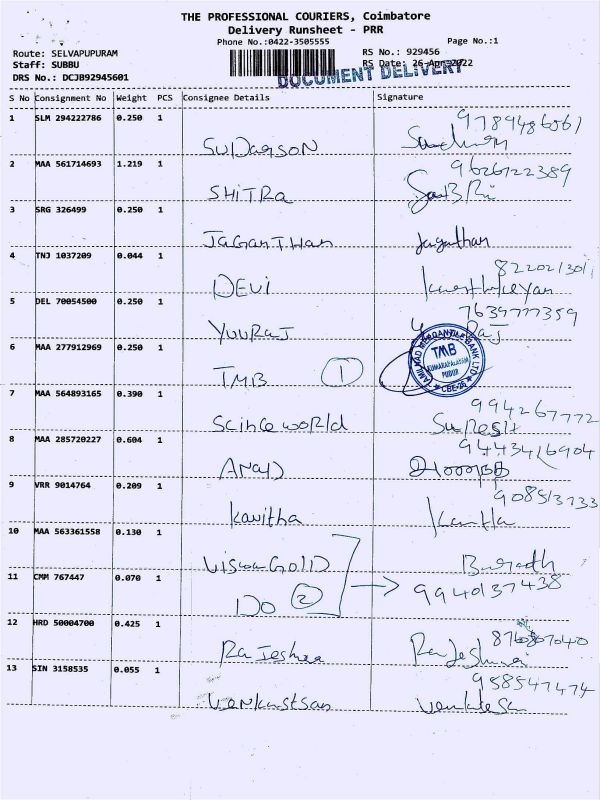 THE PROFESSIONAL COURIERS, Coimbatore
Delivery Runsheet - PRR
Phone No.:0422-3505555 Page No.:1
Route: SELVAPUPURAM RS No.: 929456
Staff: SUBBU RS Date: 26-Apr-2022
DOCUMENT DELIVERY
DRS No.: DCJB92945601
S No Consignment No Weight PCS Consignee Details Signature
1 SLM 294222786 0.250 1
SUDARSON
2 MAA 561714693 1.219 1
SHITRA 9626122389
3 SRG 326499 0.250 1
JAGANTHAN Jaganthan
4 TNJ 1037209 0.044 1
DEVI
5 DEL 70054500 0.250 1 7639777359
YUVRAJ
6 MAA 277912969 0.250 1
TMB 1
TAMILNAD MERCANTILE BANK LTD.
TMB
KUMARAPALAYAM
PUDUR
CBE-26
7 MAA 564893165 0.390 1 994267772
Scince world Suresh
8 MAA 285720227 0.604 1 9443416904
ANAD ஆனந்த்
9 VRR 9014764 0.209 1
Kavitha Kavitha
10 MAA 563361558 0.130 1
Viswa GOLD
11 CMM 767447 0.070 1 9940137438
DO 2
12 HRD 50004700 0.425 1
Rajeshwa Rajeshwari
13 SIN 3158535 0.055 1 958547474
Venkatsan Venkatesan